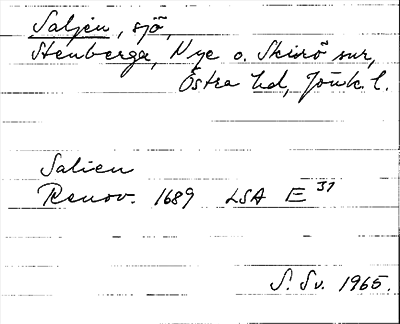 Saljen, sjö,
Stenberga, Nye o. Skirö snr,
Östra hd, Jönk. l.
Salien
Renov. 1689 LSA E 37
S. Sv. 1965.